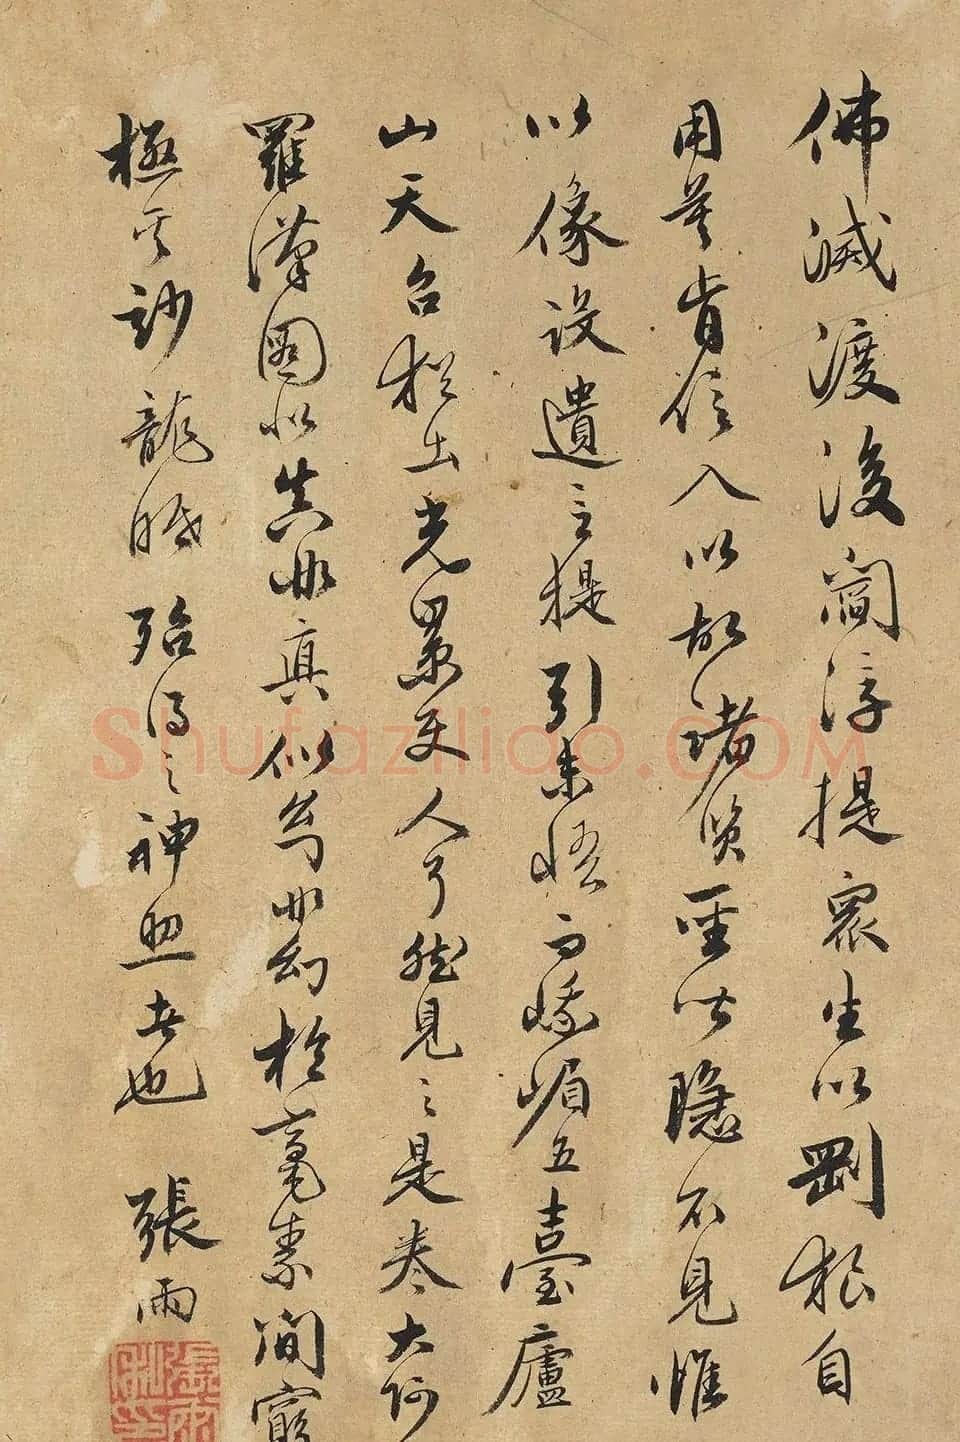 佛滅渡後閻浮提眾生以剛狠自
用莫肯信入以故諸賢聖皆隱不見惟
以像設遺言提引未悟而峨嵋五臺廬
山天台猶出光景使人了然見之是卷大阿
羅漢圖似真非真似幻非幻於毫素間窮
極其玅龍眠殆得之神照者也 張雨
Shufaziliao.COM